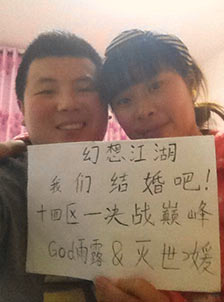 幻想江湖
我们结婚吧！
十四区一决战巅峰
God雨露&灭世媛